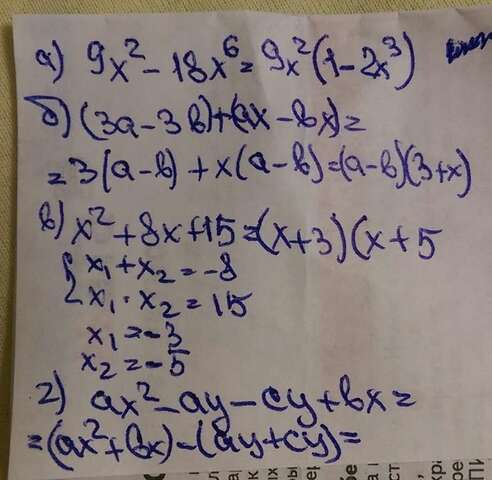 а) 9x² - 18x⁶ = 9x²(1 - 2x³)
б) (3a - 3b) + (ax - bx) =
= 3(a - b) + x(a - b) = (a - b)(3 + x)
в) x² + 8x + 15 = (x + 3)(x + 5
{ x₁ + x₂ = -8
x₁ · x₂ = 15
x₁ = -3
x₂ = -5
г) ax² - ay - cy + bx =
= (ax² + bx) - (ay + cy) =